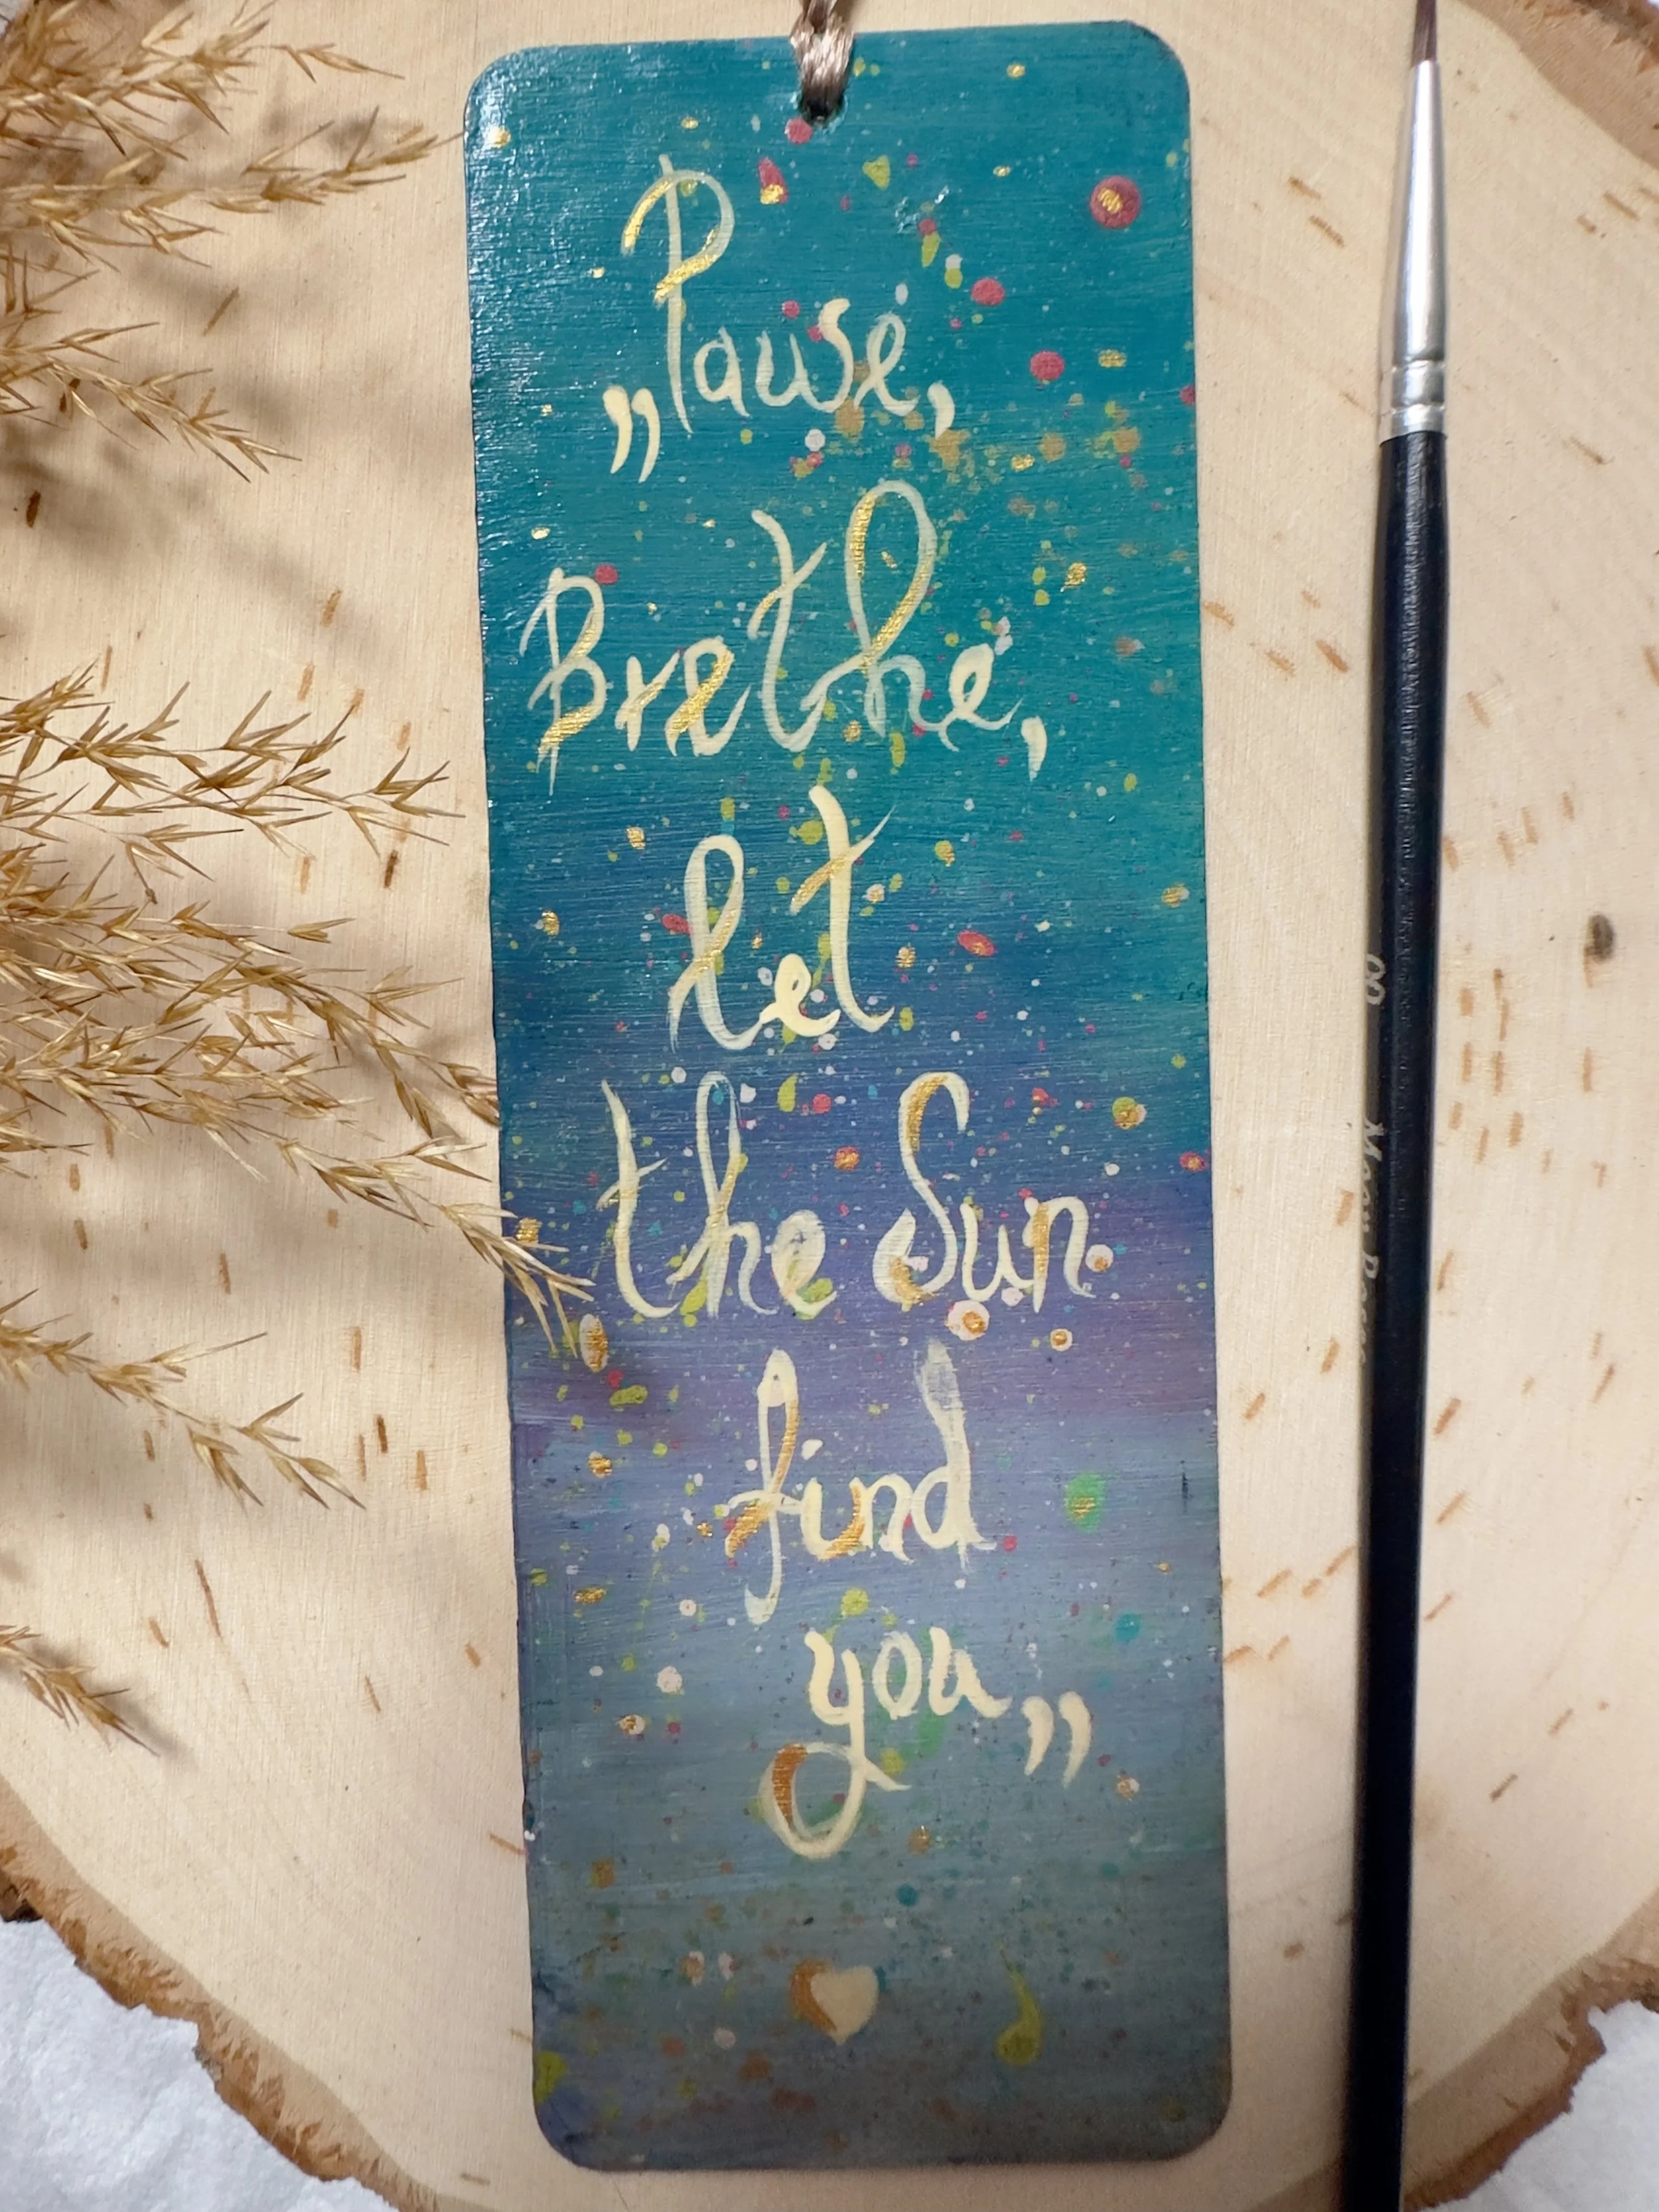 „Pause,
Brethe,
let
the Sun
find
you„
00